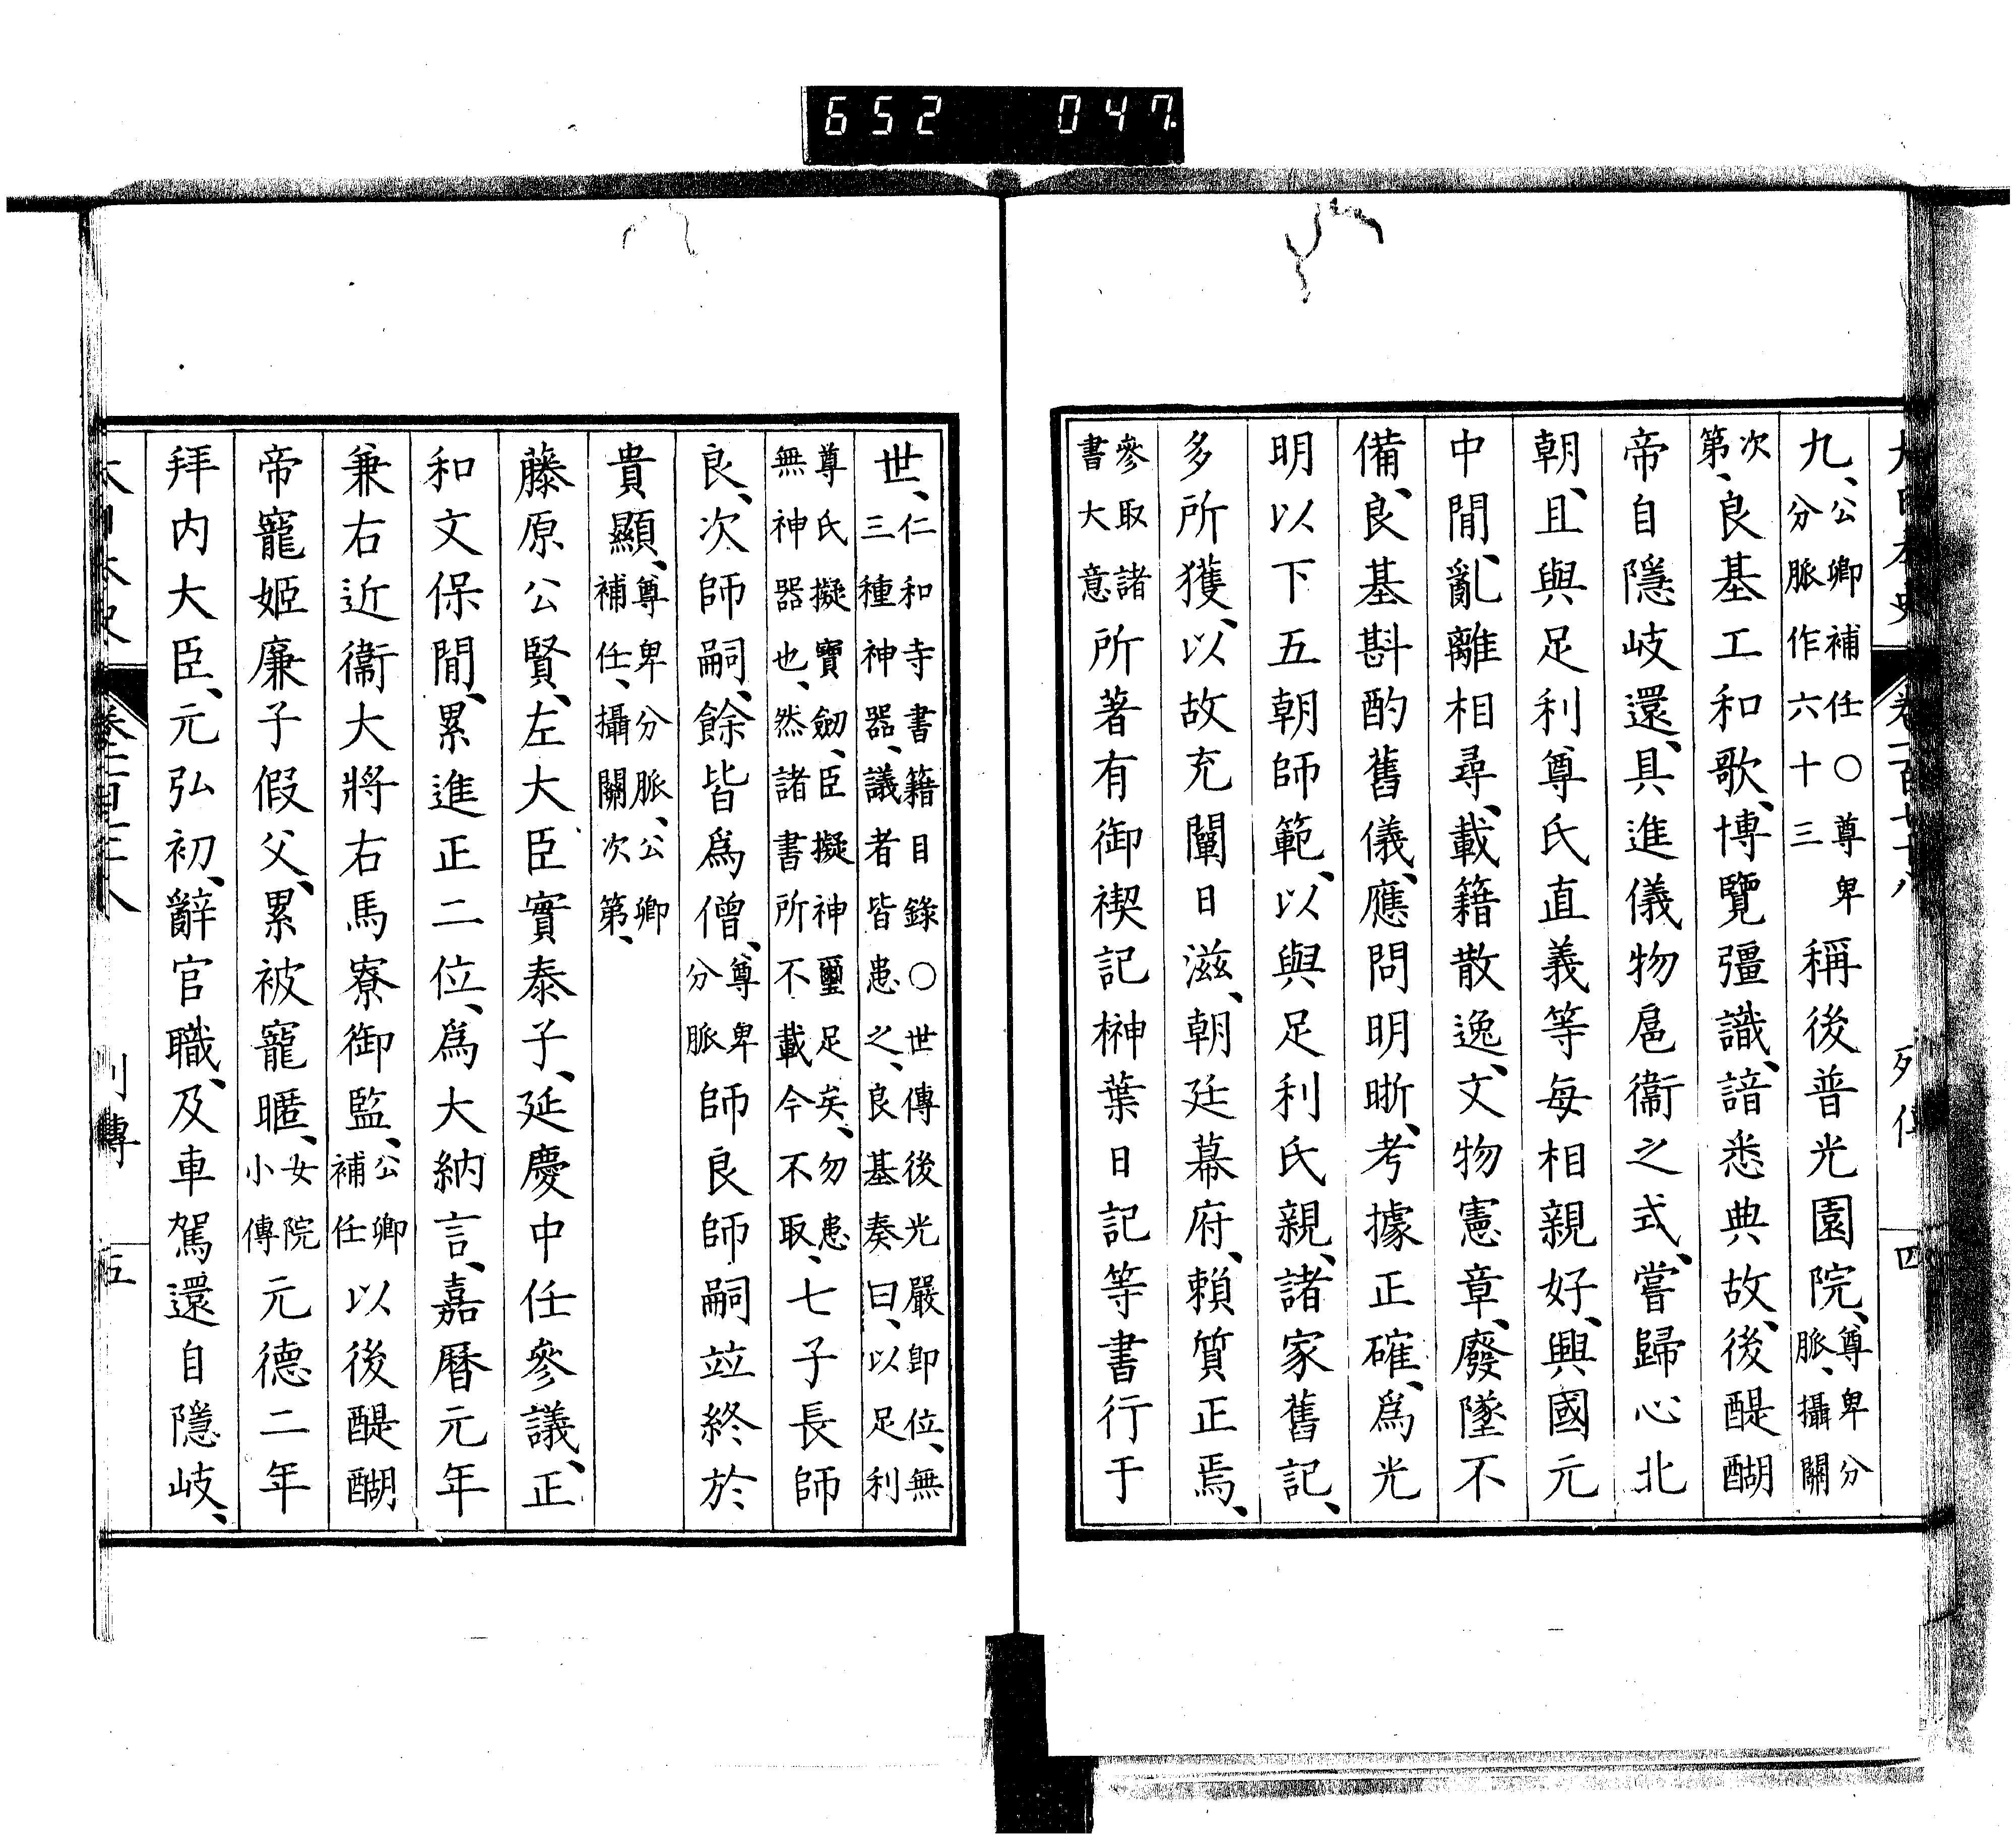 652 047
九、公卿補任〇尊卑分脈作六十三稱後普光園院、尊卑分脈、攝關
次第、良基工和歌、博覽彊識、諳悉典故、後醍醐
帝自隱岐還、具進儀物扈衞之式、嘗歸心北
朝、且與足利尊氏直義等每相親好、興國元
中閒、亂離相尋、載籍散逸、文物憲章、廢墜不
備、良基斟酌舊儀、應問明晰、考據正確、爲光
明以下五朝師範、以與足利氏親、諸家舊記、
多所獲、以故充闡日滋、朝廷幕府、賴質正焉、
參取諸書大意所著有御禊記榊葉日記等書行于
世、仁和寺書籍目錄〇世傳後光嚴卽位、無三種神器、議者皆患之、良基奏曰、以足利
尊氏擬寶劒、臣擬神璽足矣、勿患無神器也、然諸書所不載今不取、七子長師
良、次師嗣、餘皆爲僧、尊卑分脈師良師嗣竝終於
貴顯、尊卑分脈、公卿補任、攝關次第、
藤原公賢、左大臣實泰子、延慶中任參議、正
和文保閒、累進正二位、爲大納言、嘉曆元年
兼右近衞大將右馬寮御監、公卿補任以後醍醐
帝寵姬廉子假父、累被寵暱、女院小傳元德二年
拜内大臣、元弘初、辭官職、及車駕還自隱岐、